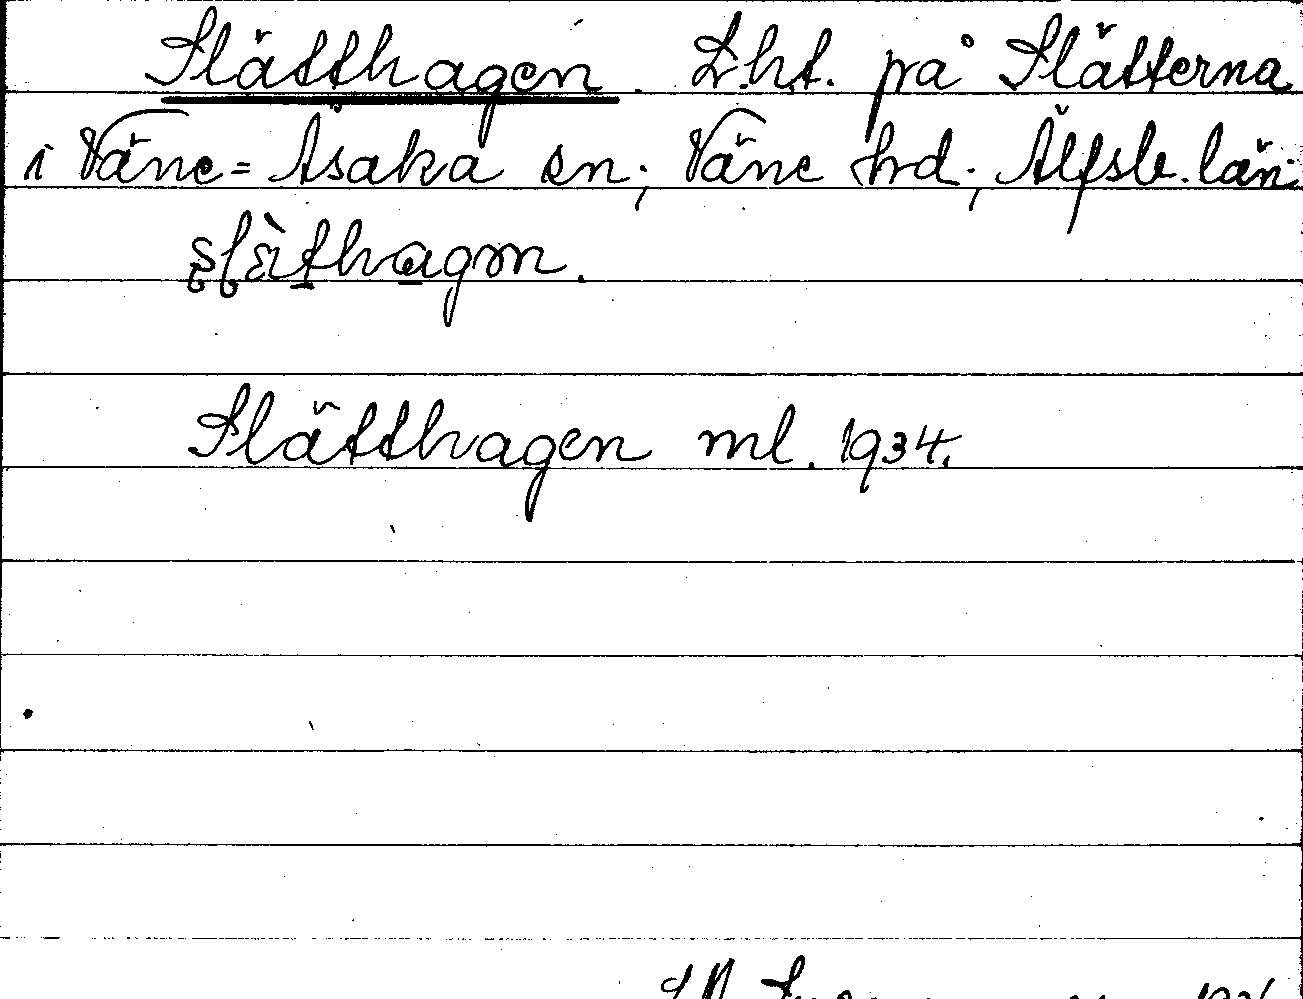 Slätthagen. Lht. på Slätterna
i Väne=Åsaka sn; Väne hrd; Älfsb. län.
Slätthagen ml. 1934.